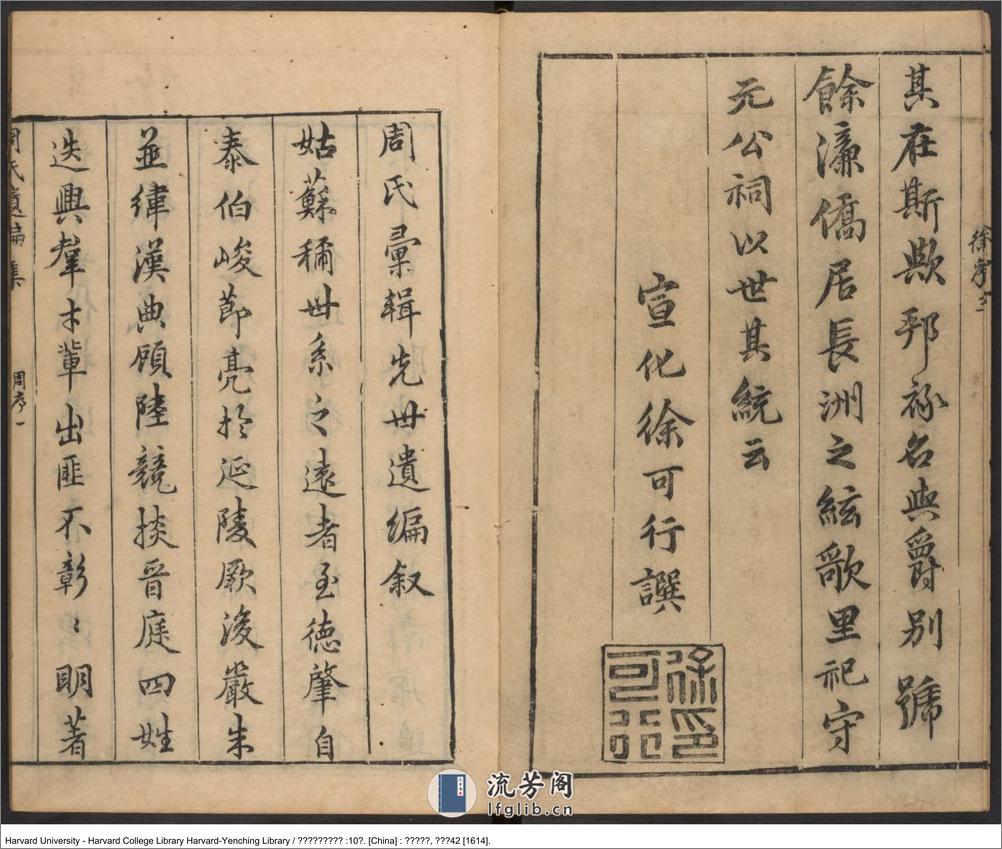 其在斯歟邦祢名與爵別號
餘濂僑居長洲之絃歌里祀守
元公祠以世其統云
宣化徐可行譔
徐印可行
徐序三
周氏彙輯先世遺編叙
姑蘇稱世系之遠者至德肇自
泰伯峻節亮於延陵厥後嚴朱
並緯漢典顧陸競掞晉庭四姓
迭興羣才輩出匪不彰〻明著
周氏遺編集
周序一
流芳阁
lfglib.cn
Harvard University - Harvard College Library Harvard-Yenching Library / ????????? :10?. [China] : ?????, ???42 [1614].